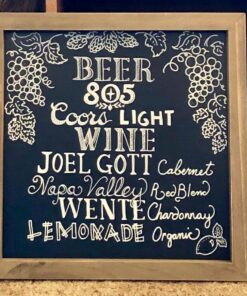 BEER
805
Coors LIGHT
WINE
JOEL GOTT Cabernet
Napa Valley Red Blend
WENTE Chardonnay
LEMONADE Organic